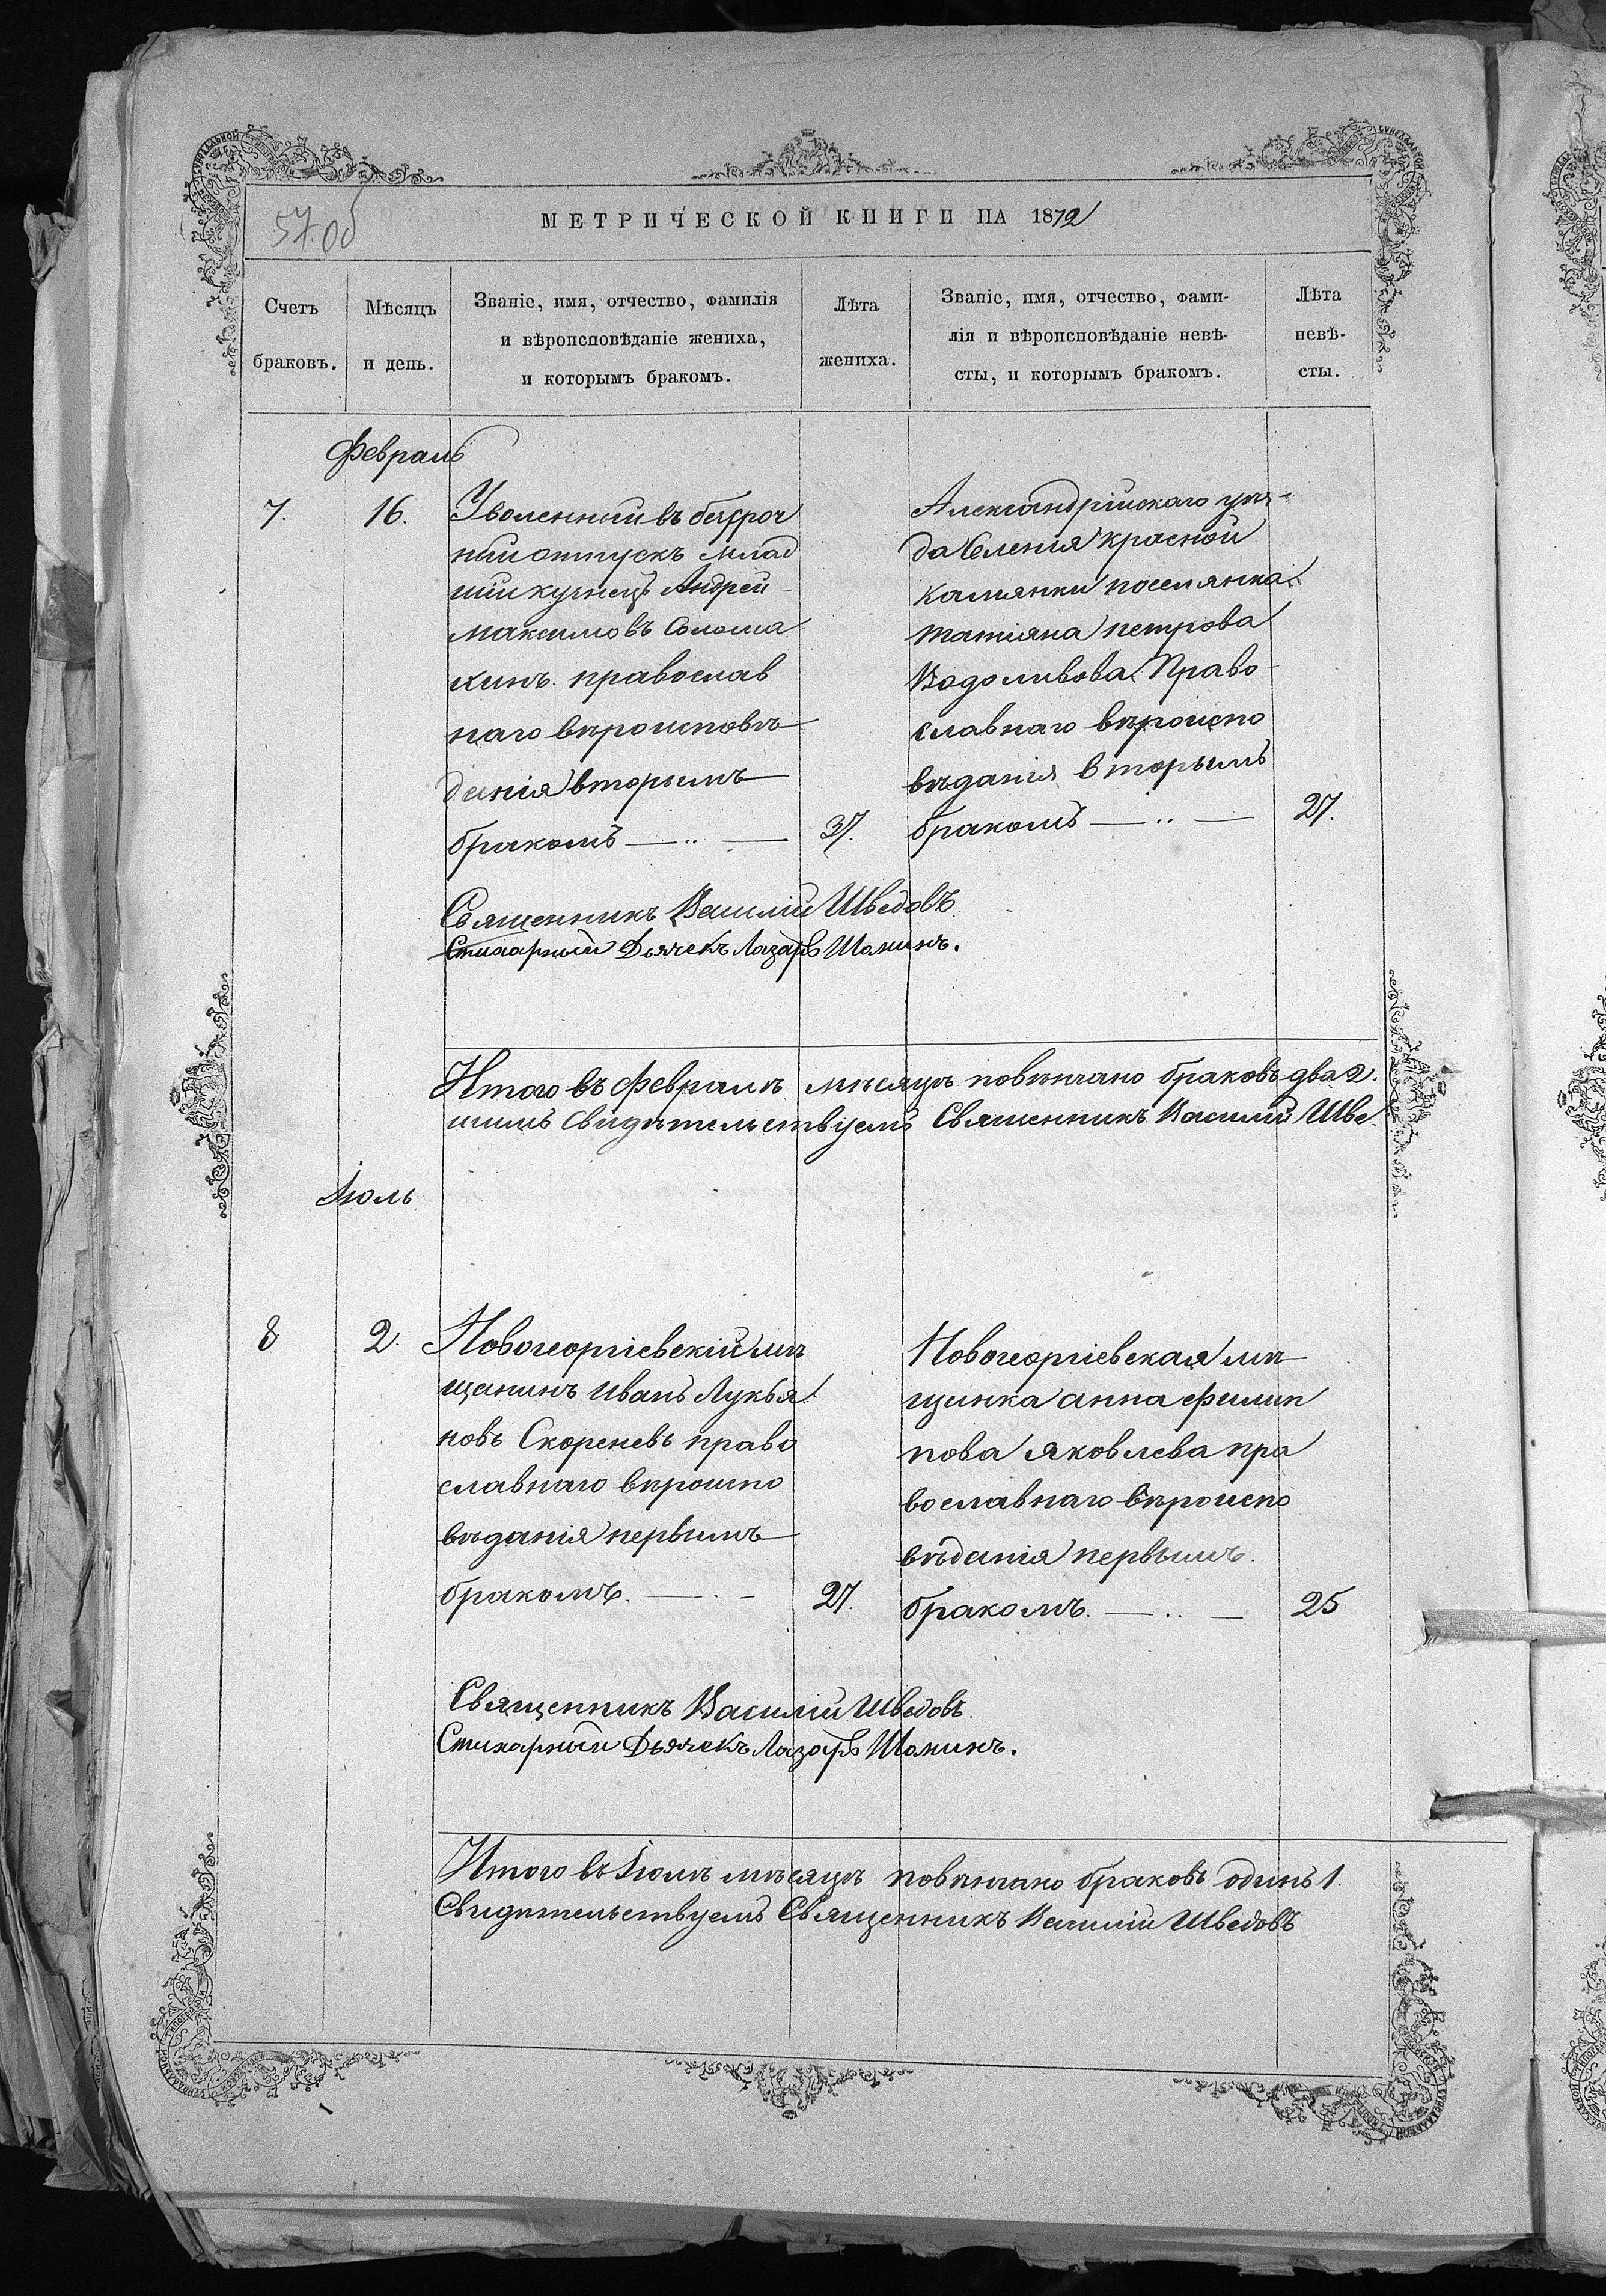 57 об
МЕТРИЧЕСКОЙ КНИГИ НА 1872
Счетъ браковъ.
Мѣсяцъ и день.
Званіе, имя, отчество, фамилія
и вѣроисповѣданіе жениха,
и которымъ бракомъ.
Лѣта жениха.
Званіе, имя, отчество, фами-
лія и вѣроисповѣданіе невѣ-
сты, и которымъ бракомъ.
Лѣта невѣ-
сты.
Февраль
7. 16.
Уволенный въ безсроч
ный отпускъ млад
шій кузнецъ Андрей
Максимовъ Солома
хинъ православ
наго вѣроисповѣ
данія вторымъ
бракомъ — „ — 37.
Александрійскаго уѣз-
да Селенія Красной
Камянки поселянка
татіяна петрова
Водоливова Право
славнаго вѣроиспо
вѣданія вторымъ
бракомъ — „ — 27.
Священникъ Василій Шведовъ
Стихарный Дьячекъ Лазарь Шаминъ.
Итого въ февралѣ мѣсяцѣ повѣнчано браковъ два 2.
симъ свидѣтельствуемъ Священникъ Василій Шве
Іюль
8 2.
Новогеоргіевскій мѣ
щанинъ Иванъ Лукья
новъ Скореневъ право
славнаго вѣроиспо
вѣданія первымъ
бракомъ. — . — 27.
Новогеоргіевская мѣ
щанка анна филип
пова Яковлева пра
вославнаго вѣроиспо
вѣданія первымъ.
бракомъ. — .. — 25
Священникъ Василій Шведовъ.
Стихарный Дьячекъ Лазарь Шаминъ.
Итого въ Іюлѣ мѣсяцѣ повѣнчано браковъ одинъ 1.
Свидѣтельствуемъ Священникъ Василій Шведовъ